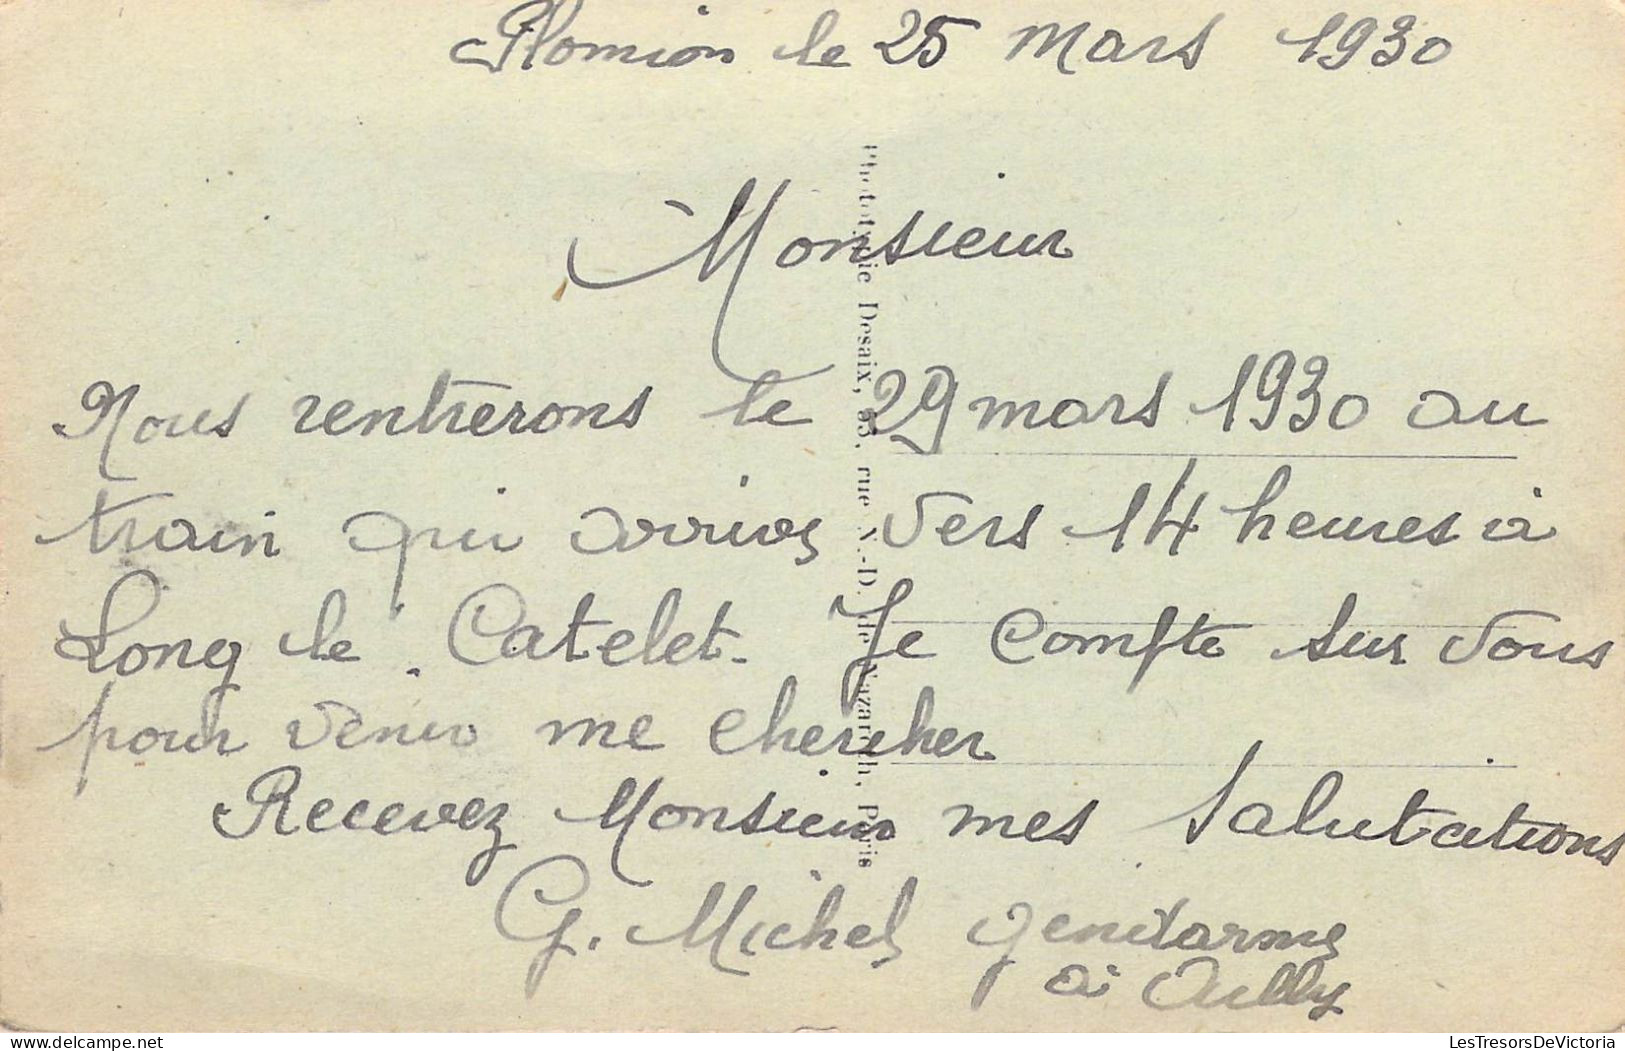 Plomion le 25 mars 1930
Monsieur
Nous rentrerons le 29 mars 1930 au
train qui arrive vers 14 heures à
Long le Catelet. Je compte sur vous
pour venir me chercher
Recevez Monsieur mes salutations
G. Michel gendarme
à
Phototypie Desaix, rue N.-D. de Nazareth, Paris
LesTresorsDeVictoria
delcampe.net